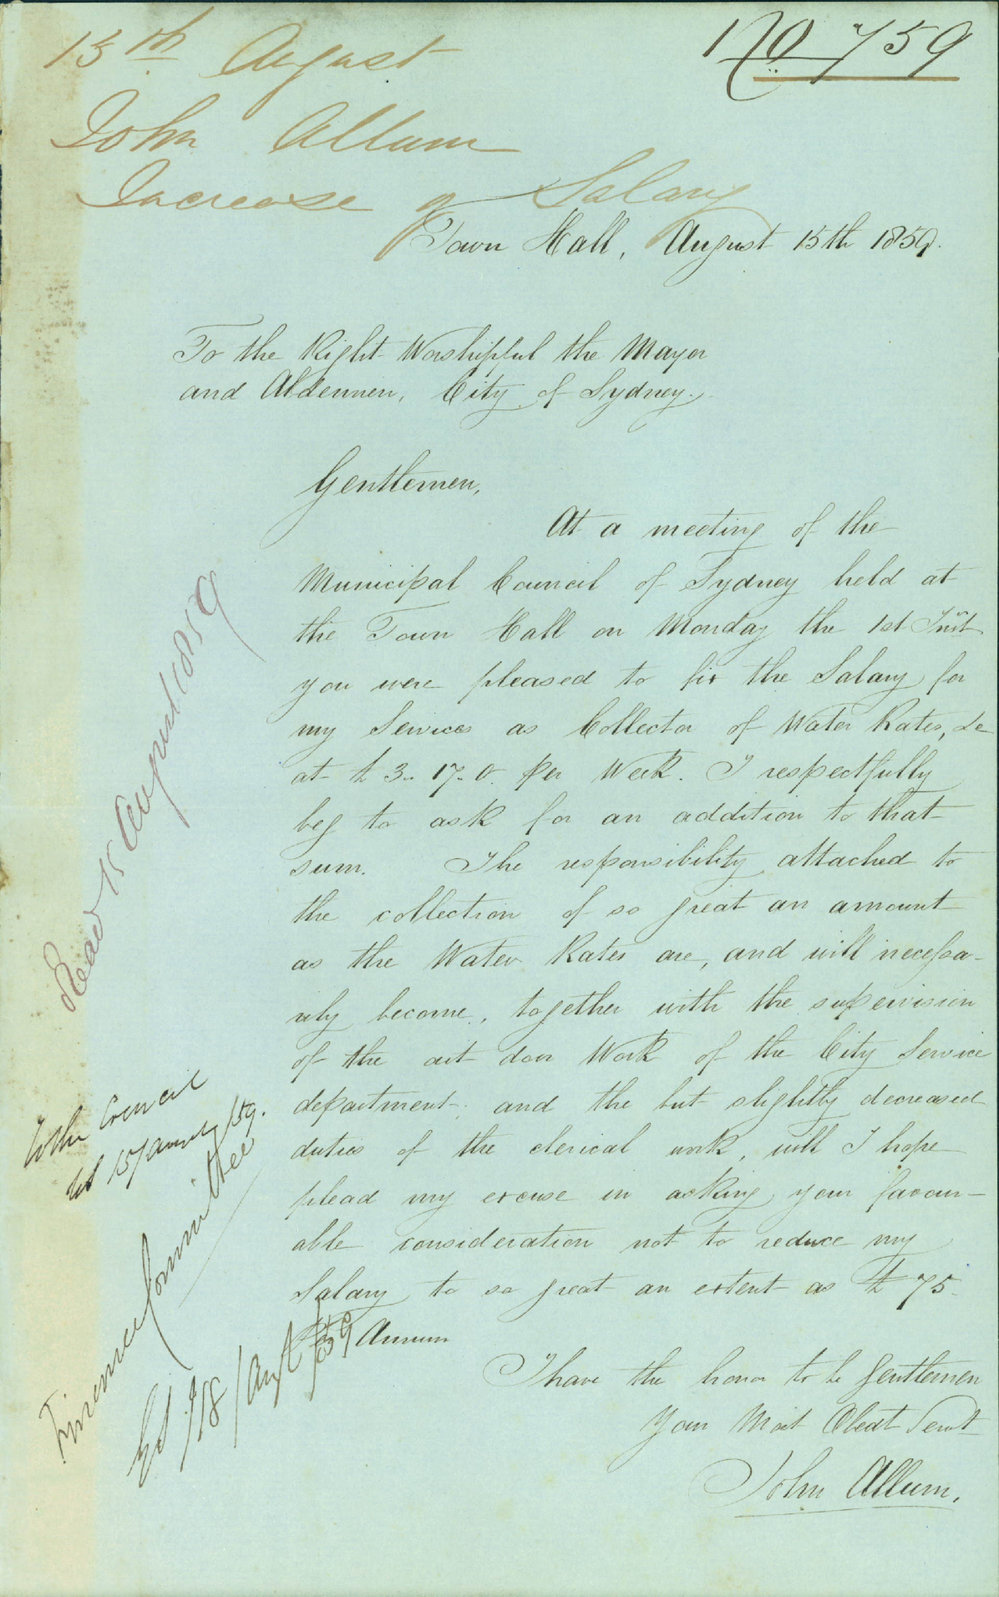 15th August
No 759
John Allum
Increase of Salary
Town Hall, August 15th 1859.
To the Right Worshipful the Mayor
and Aldermen, City of Sydney.
Gentlemen,
At a meeting of the
Municipal Council of Sydney held at
the Town Hall on Monday the 1st Inst
you were pleased to fix the Salary for
my Services as Collector of Water Rates, &c
at £3-17-0. Per Week. I respectfully
beg to ask for an addition to that
sum. The responsibility attached to
the collection of so great an amount
as the Water Rates are, and will necessa-
rily become, together with the supervision
of the out door Work of the City Service
department, and the but slightly decreased
duties of the clerical work, will I hope
plead my excuse in asking your favour-
able consideration not to reduce my
Salary to so great an extent as £75
Annum
I have the honor to be Gentlemen
Your Most Obedt Servt
John Allum.
Read 15 August 1859
Council
15
/59.
Finance Committee
18/Augt/59